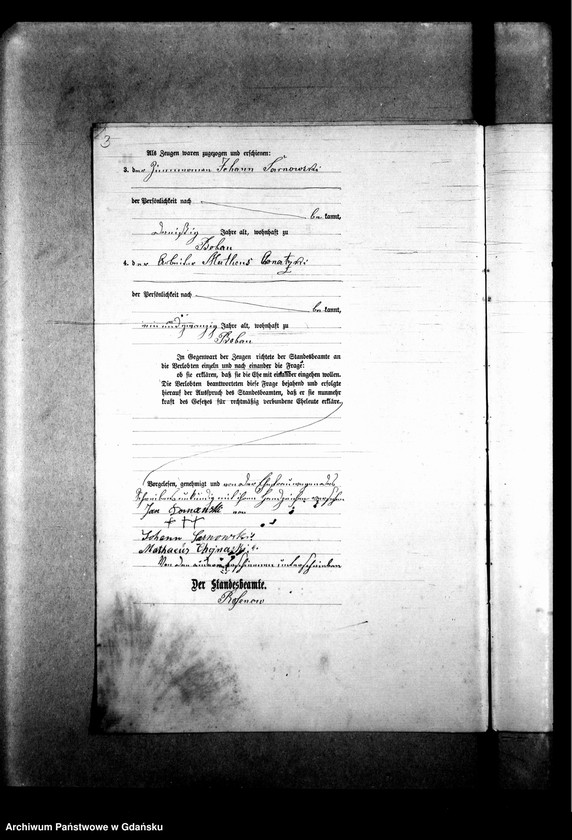 3
Als Zeugen waren zugezogen und erschienen:
3. der Zimmermann Johann Sarnowski
der Persönlichkeit nach
be kannt,
dreißig Jahre alt, wohnhaft zu
Bohan
4. der Arbeiter Matheus
der Persönlichkeit nach
be kannt,
ein und zwanzig Jahre alt, wohnhaft zu
Bohan
In Gegenwart der Zeugen richtete der Standesbeamte an
die Verlobten einzeln und nach einander die Frage:
ob sie erklären, daß sie die Ehe mit einander eingehen wollen.
Die Verlobten beantworteten diese Frage bejahend und erfolgte
hierauf der Ausspruch des Standesbeamten, daß er sie nunmehr
kraft des Gesetzes für rechtmäßig verbundene Eheleute erkläre.
Vorgelesen, genehmigt und von der Ehefrau wegen des
Schreibens unkundig mit ihrem Handzeichen versehen
Jan Domański
+++
Johann Sarnowski
Mathaeus
Von den erschienenen unterschrieben
Der Standesbeamte.
Rosenow
Archiwum Państwowe w Gdańsku